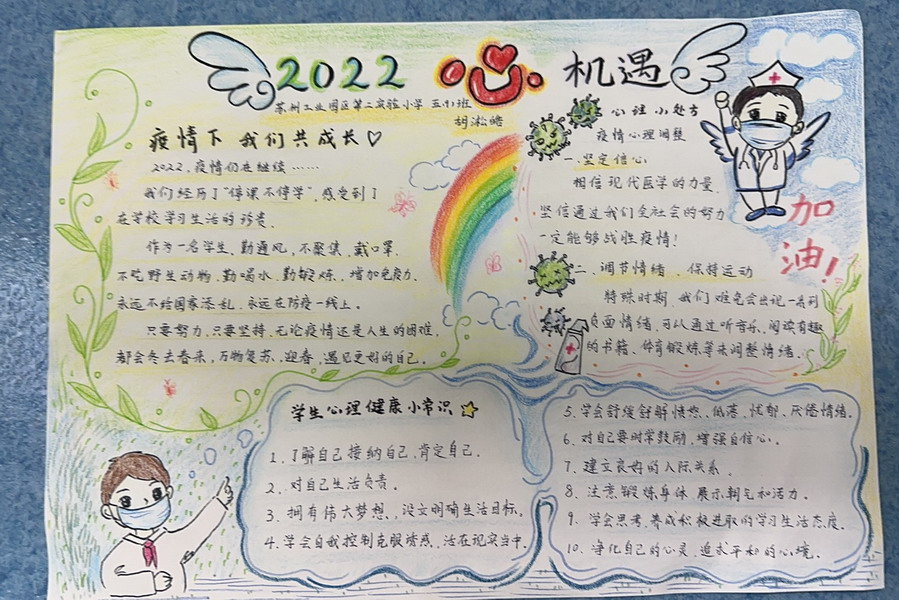 2022 心 机遇
苏州工业园区第二实验小学 五(1)班
疫情下 我们共成长
2022,疫情仍在继续……
我们经历了"停课不停学",感受到了
在学校学习生活的珍贵.
作为一名学生,勤通风,不聚集,戴口罩.
不吃野生动物,勤喝水,勤锻炼,增加免疫力.
永远不给国家添乱,永远在防疫一线上.
只要努力,只要坚持,无论疫情还是人生的困难,
都会冬去春来,万物复苏,迎春,遇见更好的自己.
心理小处方
疫情心理调整
一.坚定信心
相信现代医学的力量.
坚信通过我们全社会的努力
一定能够战胜疫情!
二.调节情绪、保持运动
特殊时期,我们难免会出现一系列
负面情绪,可以通过听音乐、阅读有趣
的书籍、体育锻炼等来调整情绪.
加
油!
学生心理健康小常识
1.了解自己接纳自己,肯定自己.
2.对自己生活负责.
3.拥有伟大梦想,设立明确生活目标.
4.学会自我控制克服诱惑,活在现实当中.
5.学会舒缓舒解愤怒、低落、忧郁、厌倦情绪.
6.对自己要时常鼓励,增强自信心.
7.建立良好的人际关系.
8.注意锻炼身体 展示朝气和活力.
9.学会思考,养成积极进取的学习生活态度.
10.净化自己的心灵,追求平和的心境.